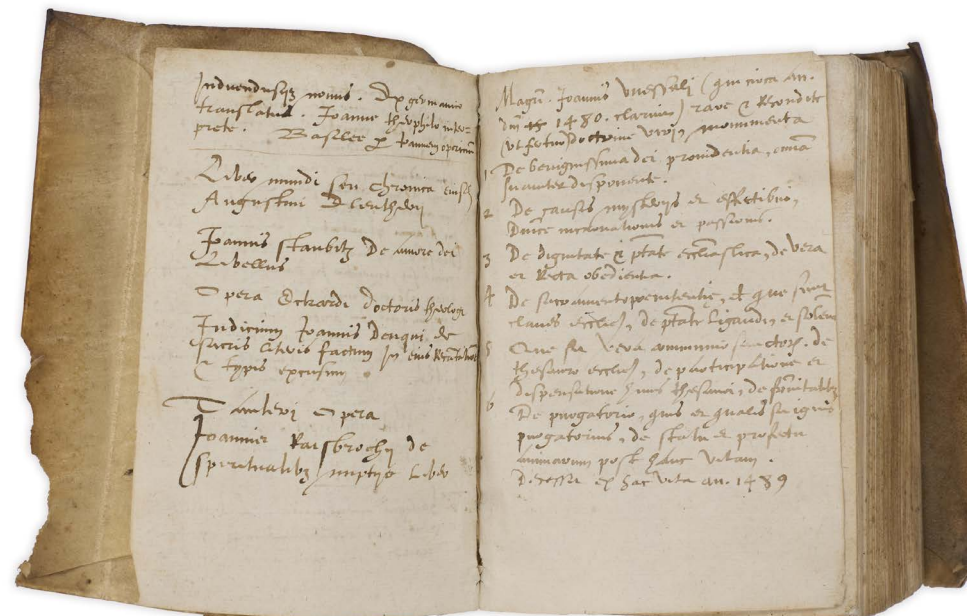 Induendusq; novus. Ex germanico
translatus. Joanne theophilo inter=
prete. Basilee per Joannem oporinum
Liber mundi seu chronica eiusdem
Augustini
Joannis staubitz De amore dei
Libellus
Opera Eckardi doctoris theologi
Judicium Joannis Denqui de
sacris literis factum in eius
typis excusum
Tauleri Opera
Joannis Rusbrochij de
spiritualibus nuptijs Liber
Magri. Joannis Vuessali (qui circa an.
dni 1480. claruit) rare & recondite
(ut fertur) doctrine viri, monimenta
1 De benignissima dei providentia, omnia
suaviter disponente.
2 De causis mysterijs et effectibus,
Dnice incarnationis et passionis.
3 De dignitate & ptate ecclesiastica, de vera
et Recta obedientia.
4 De sacramento poenitentie, et que sint
claves ecclesie, de ptate Ligandi, et solvendi
5 Que sit vera communio sanctor. de
thesauro ecclesie, de participatione et
dispensatione huius thesauri, de
6 De purgatorio, quis et qualis sit ignis
purgatorius, de statu et profectu
animarum post hanc vitam.
Decessit ex hac vita an. 1489